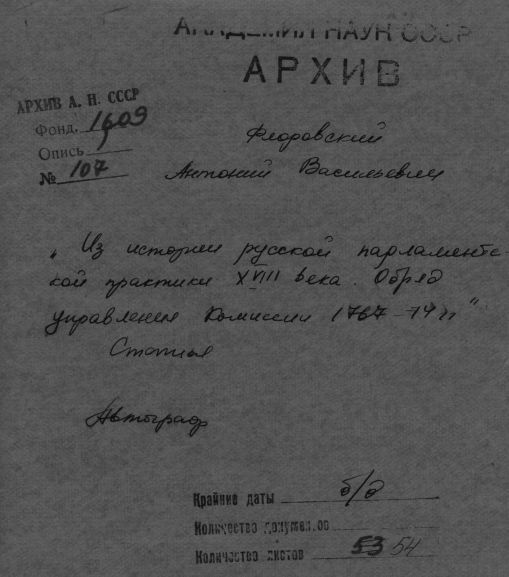 АКАДЕМИЯ НАУК СССР
АРХИВ
АРХИВ А. Н. СССР
Фонд. 1609
Опись 1
№ 107
Флоровский
Антоний Васильевич
„Из истории русской парламентс-
кой практики XVIII века. Обряд
управления Комиссии 1767-74 гг"
Статья
Автограф
Крайние даты б/д
Количество документов
Количество листов 53 54